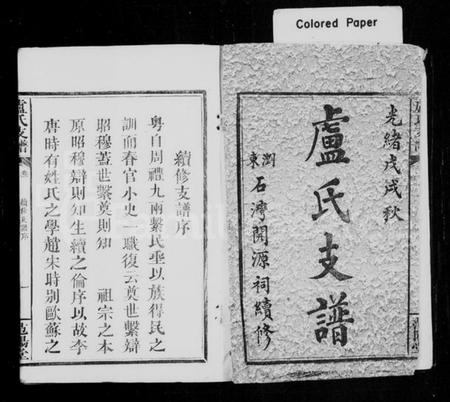 Colored Paper
光緒戊戌秋
盧氏支譜
瀏東石灣開源祠續修
續修支譜序
粵自周禮九兩繫民垂以族得民之
訓而春官小史一職復云奠世繫辯
昭穆蓋世繫奠則知 祖宗之本
原昭穆辯則知生續之倫序以故李
唐時有姓氏之學趙宋時别歐蘇之
盧氏支譜